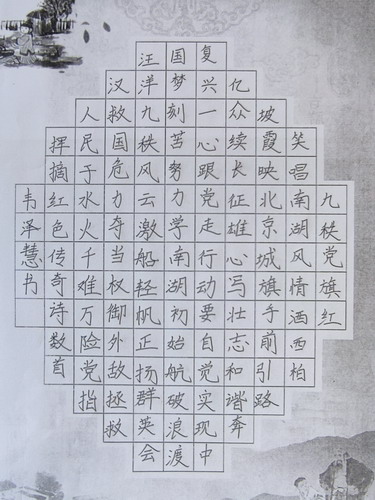 九秩党旗红
笑唱南湖风情洒西柏
坡霞映北京城旗手前引路
亿众续长征雄心写壮志和谐奔
复兴一心跟党走行动要自觉实现中
国梦刻苦努力学南湖初始航破浪渡
汪洋九秩风云激船轻帆正扬群英会
汉救国危力夺当权御外敌拯救
人民于水火千难万险党指
挥摘红色传奇诗数首
韦泽慧书